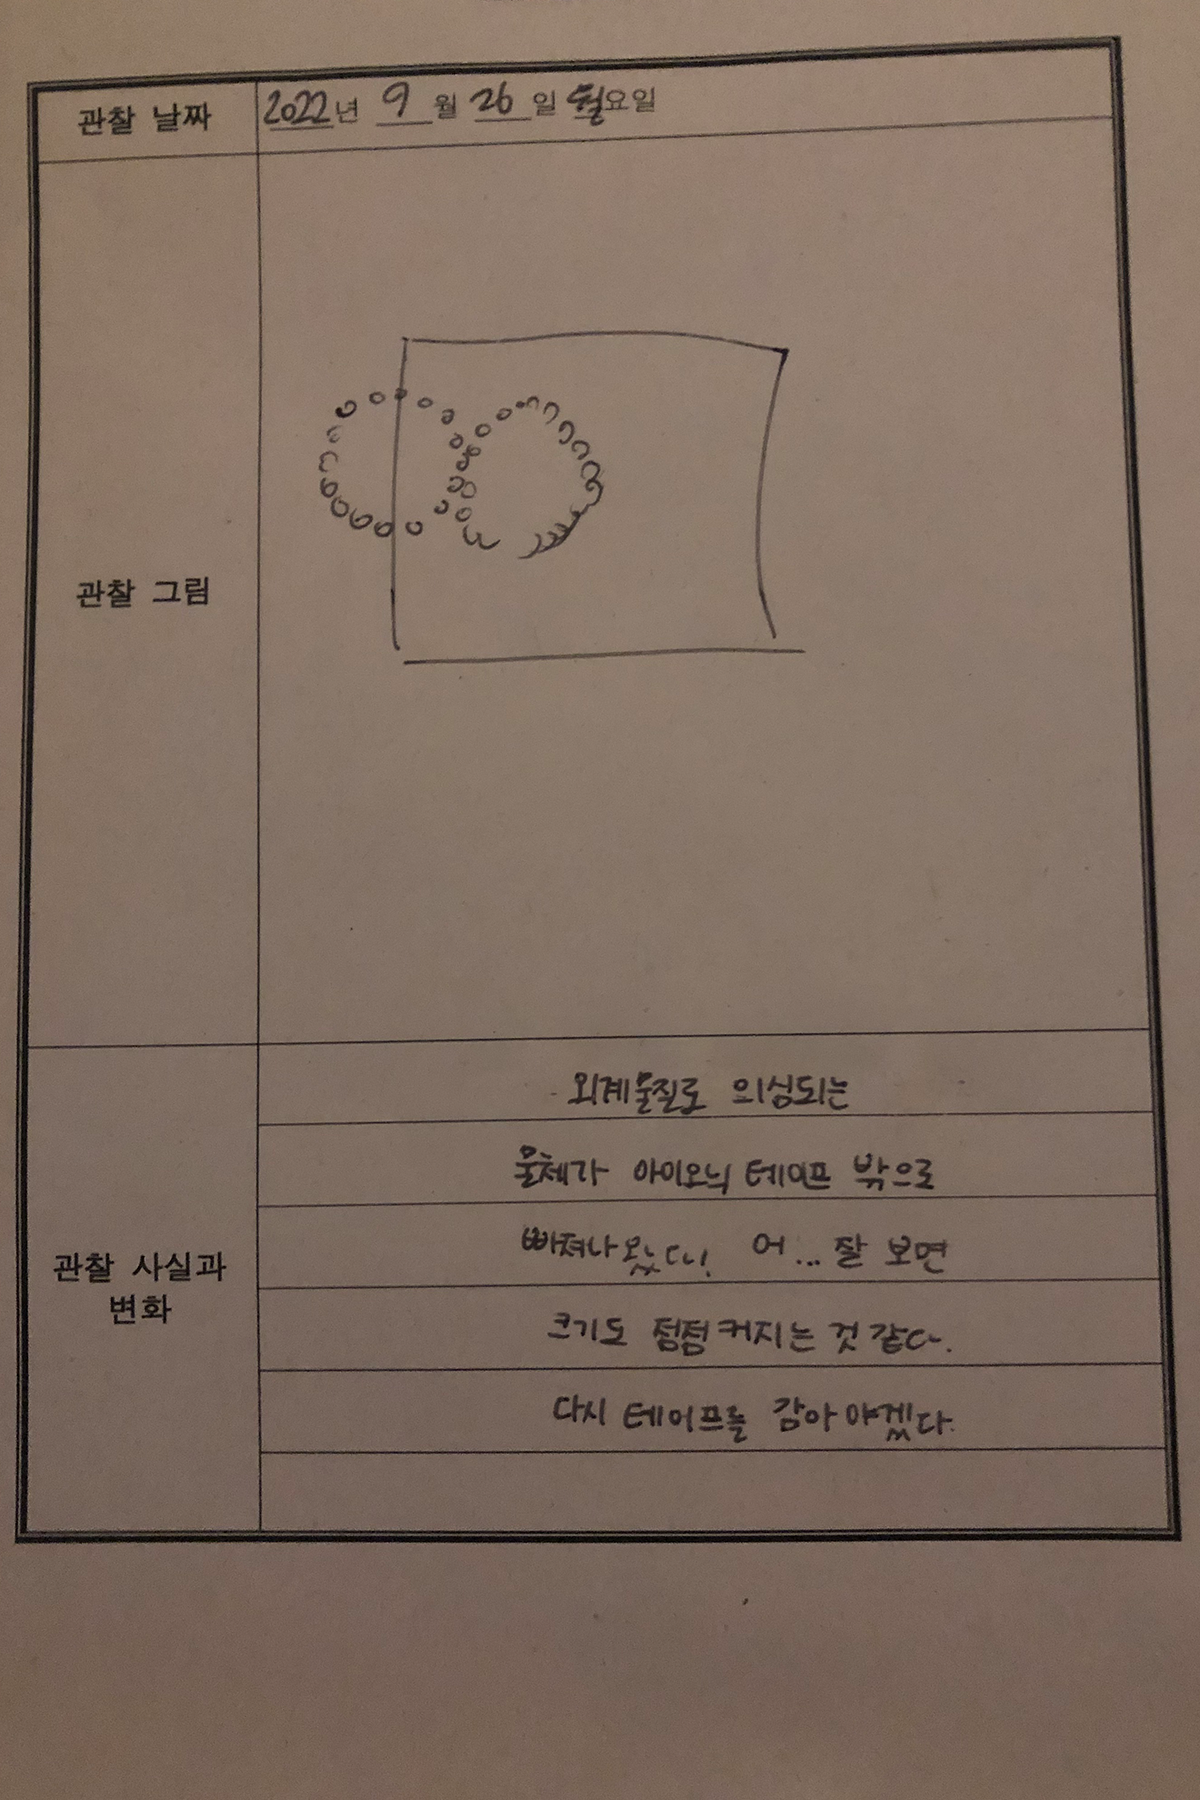 관찰 날짜
2022년 9월 26일 월요일
관찰 그림
관찰 사실과
변화
외계물질로 의심되는
물체가 아이오닉 테이프 밖으로
빠져나왔다! 어... 잘 보면
크기도 점점 커지는 것 같다.
다시 테이프를 감아야겠다.